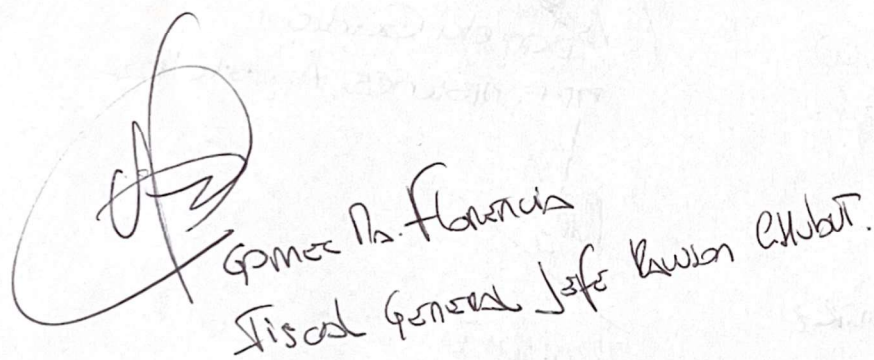 Gomez Ma. Florencia
Fiscal General Jefe Rawson Chubut.